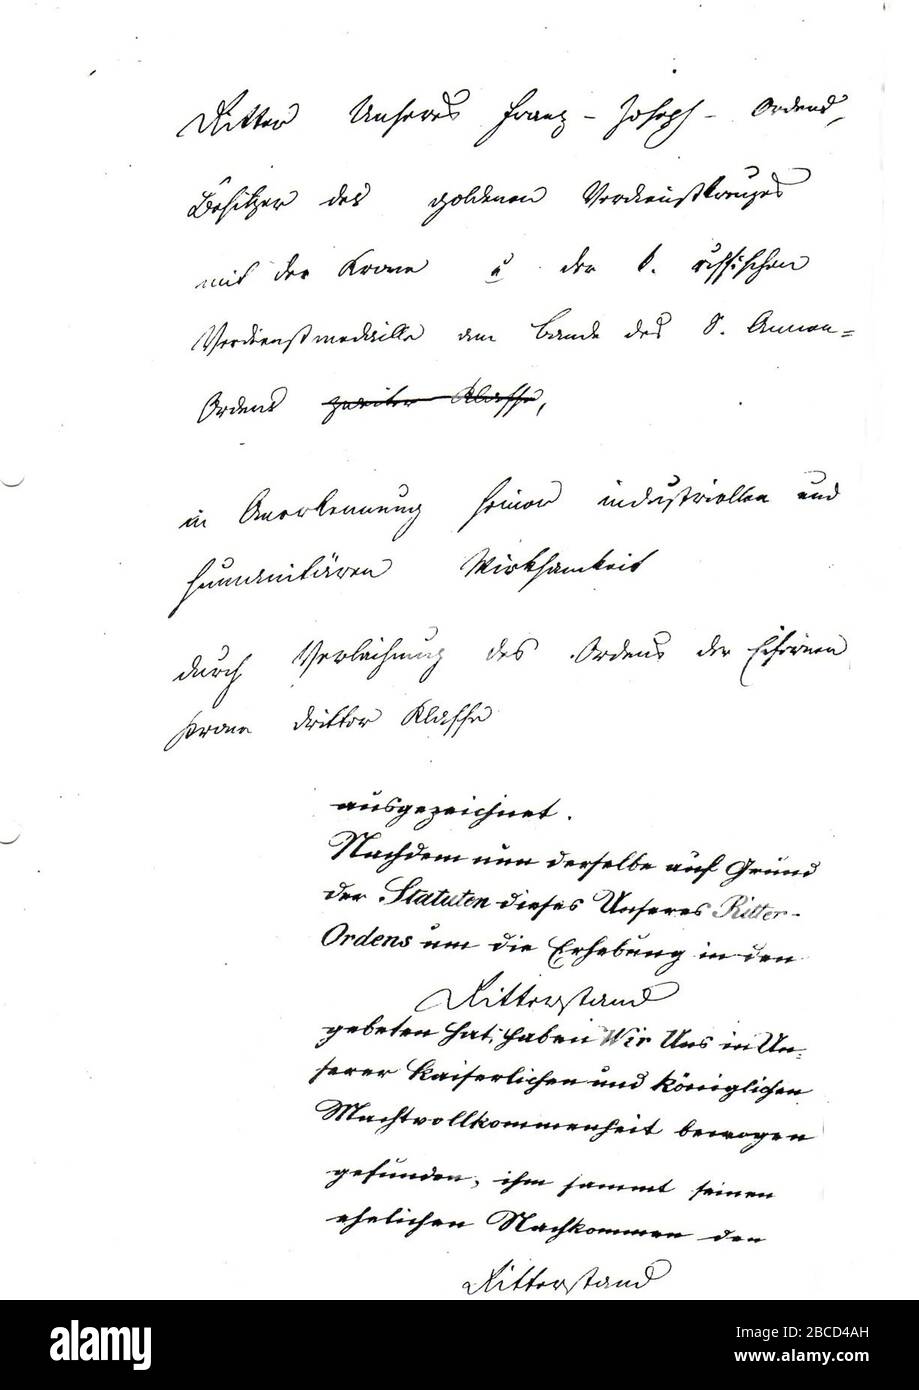 Ritter Unseres Franz-Joseph-Ordens,
Besitzer des goldenen Verdienstkreuzes
mit der Krone u der k. russischen
Verdienstmedaille am Bande des S. Annen=
Ordens zweiter Klasse,
in Anerkennung seiner industriellen und
humanitären Wirksamkeit
durch Verleihung des Ordens der Eisernen
Krone dritter Klasse
ausgezeichnet.
Nachdem nun derselbe auf Grund
der Statuten dieses Unseres Ritter-
Ordens um die Erhebung in den
Ritterstand
gebeten hat, haben Wir Uns in Un-
serer kaiserlichen und königlichen
Machtvollkommenheit bewogen
gefunden, ihm sammt seinen
ehelichen Nachkommen den
Ritterstand
alamy
alamy
Image ID: 2BCD4AH
www.alamy.com